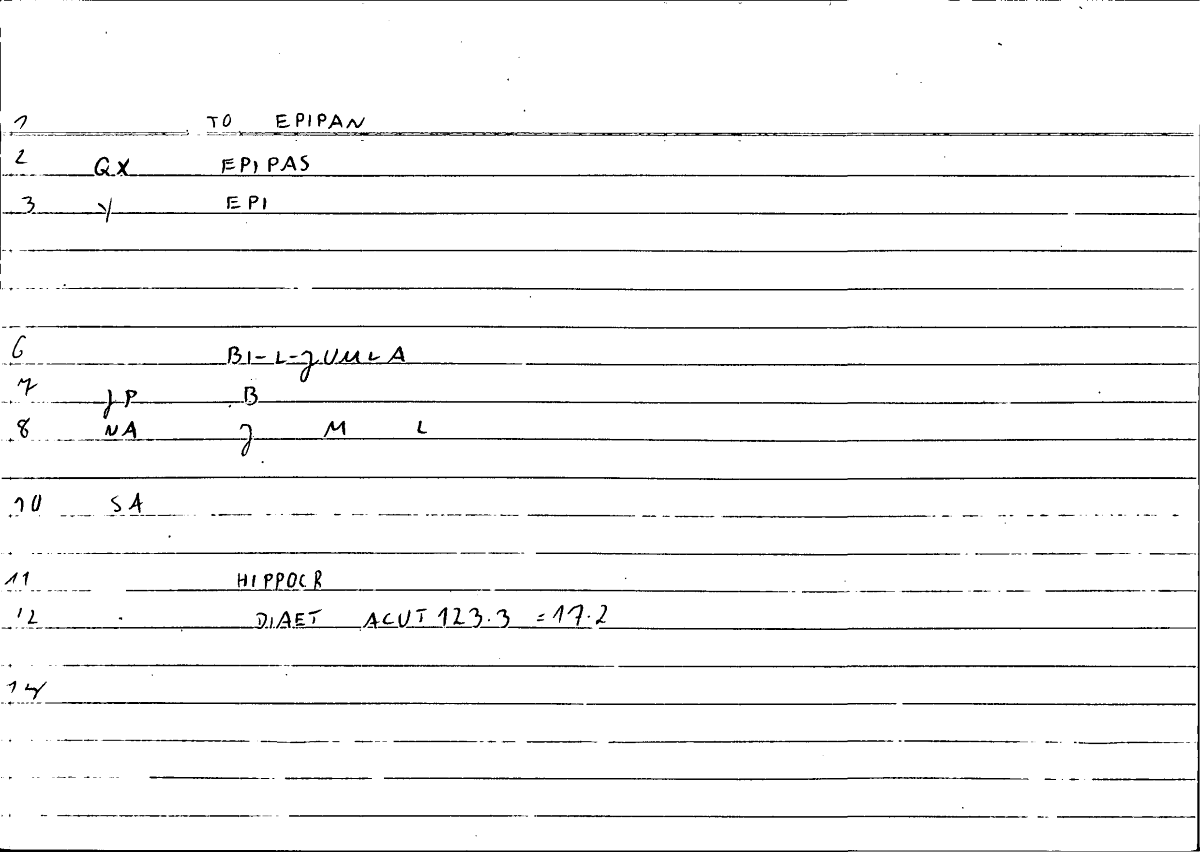 1 TO EPIPAN
2 QX EPIPAS
3 Y EPI
6 BI-L-JUMLA
7 JP B
8 NA J M L
10 SA
11 HIPPOCR
12 DIAET ACUT 123.3 =17.2
14